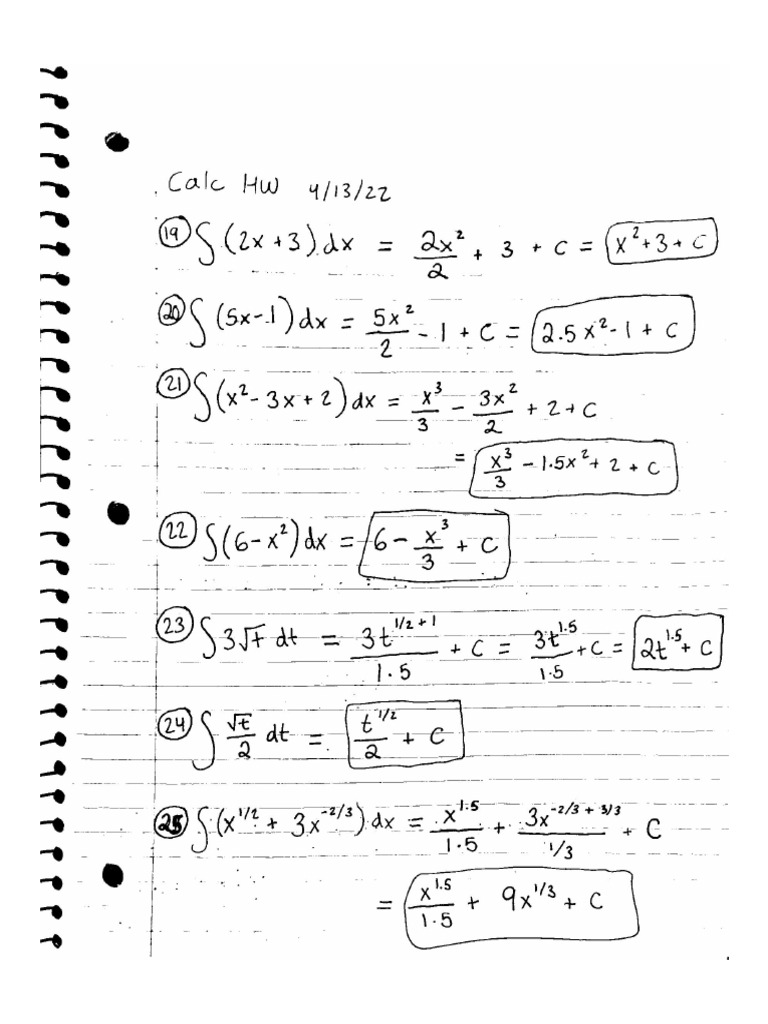 Calc HW 4/13/22
(19) ∫(2x+3)dx = 2x²/2 + 3 + C = x²+3+C
(20) ∫(5x-1)dx = 5x²/2 - 1 + C = 2.5x²-1+C
(21) ∫(x²-3x+2)dx = x³/3 - 3x²/2 + 2 + C
= x³/3 - 1.5x² + 2 + C
(22) ∫(6-x²)dx = 6 - x³/3 + C
(23) ∫3√t dt = 3t^(1/2+1)/1.5 + C = 3t^1.5/1.5 + C = 2t^1.5 + C
(24) ∫√t/2 dt = t^(1/2)/2 + C
(25) ∫(x^(1/2) + 3x^(-2/3))dx = x^1.5/1.5 + 3x^(-2/3+3/3)/(1/3) + C
= x^1.5/1.5 + 9x^(1/3) + C